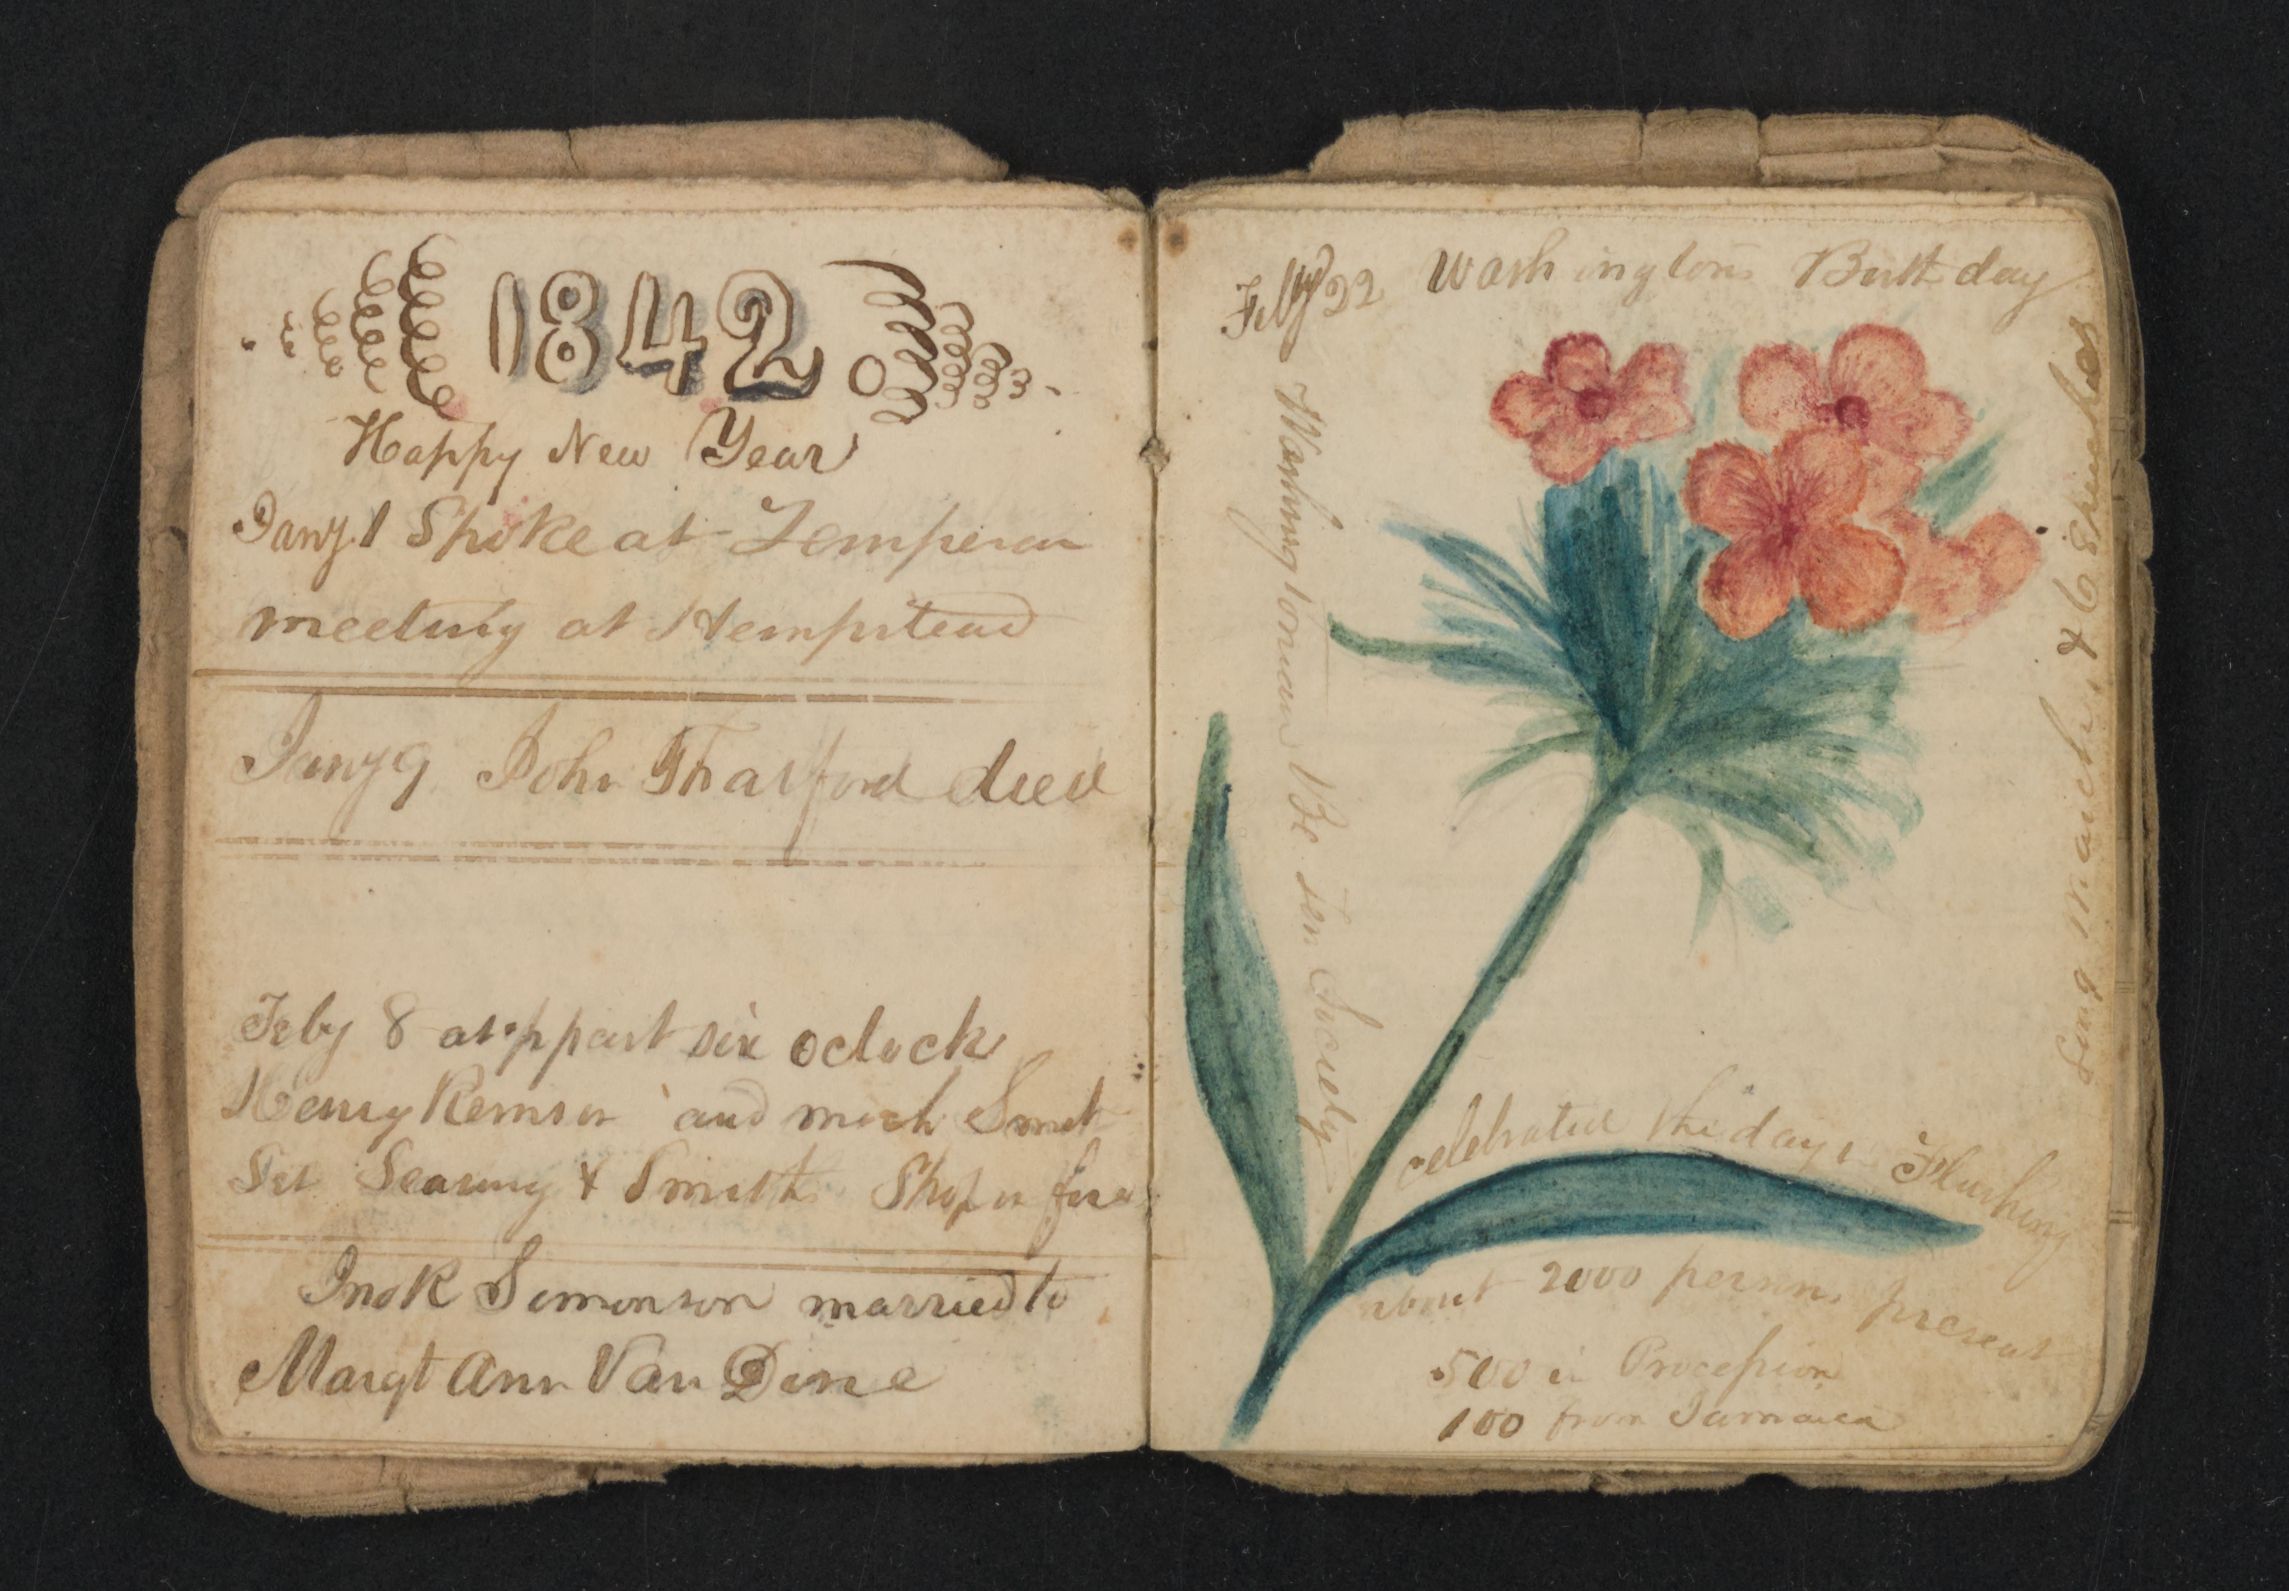 1842
Happy New Year
Jany 1 Spoke at Temperan
meeting at Hempstead
Jany 9 John Tharford died
Feby 8 at ppast six oclock
Henry Remsen and Smit
Set Searing & Smiths Shop on fire
Simonson married to
Margt Ann Van Dine
Feby 22 Washingtons Birthday
Washingtonian Society
celebrated the day Flushing
about 2000 persons present
500 in Procession
100 from Jamaica
Long march & 6 speeches